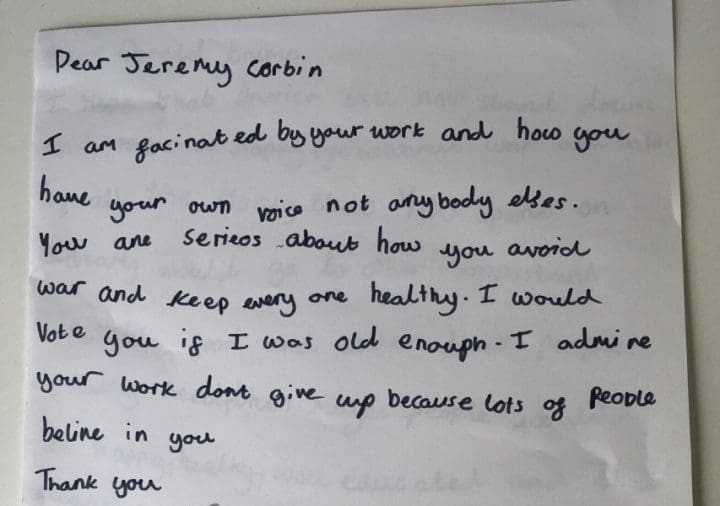 Dear Jeremy Corbin
I am facinated by your work and how you
have your own voice not anybody elses.
You are serieos about how you avoid
war and keep every one healthy. I would
Vote you if I was old enough. I admire
your work dont give up because lots of People
belive in you
Thank you